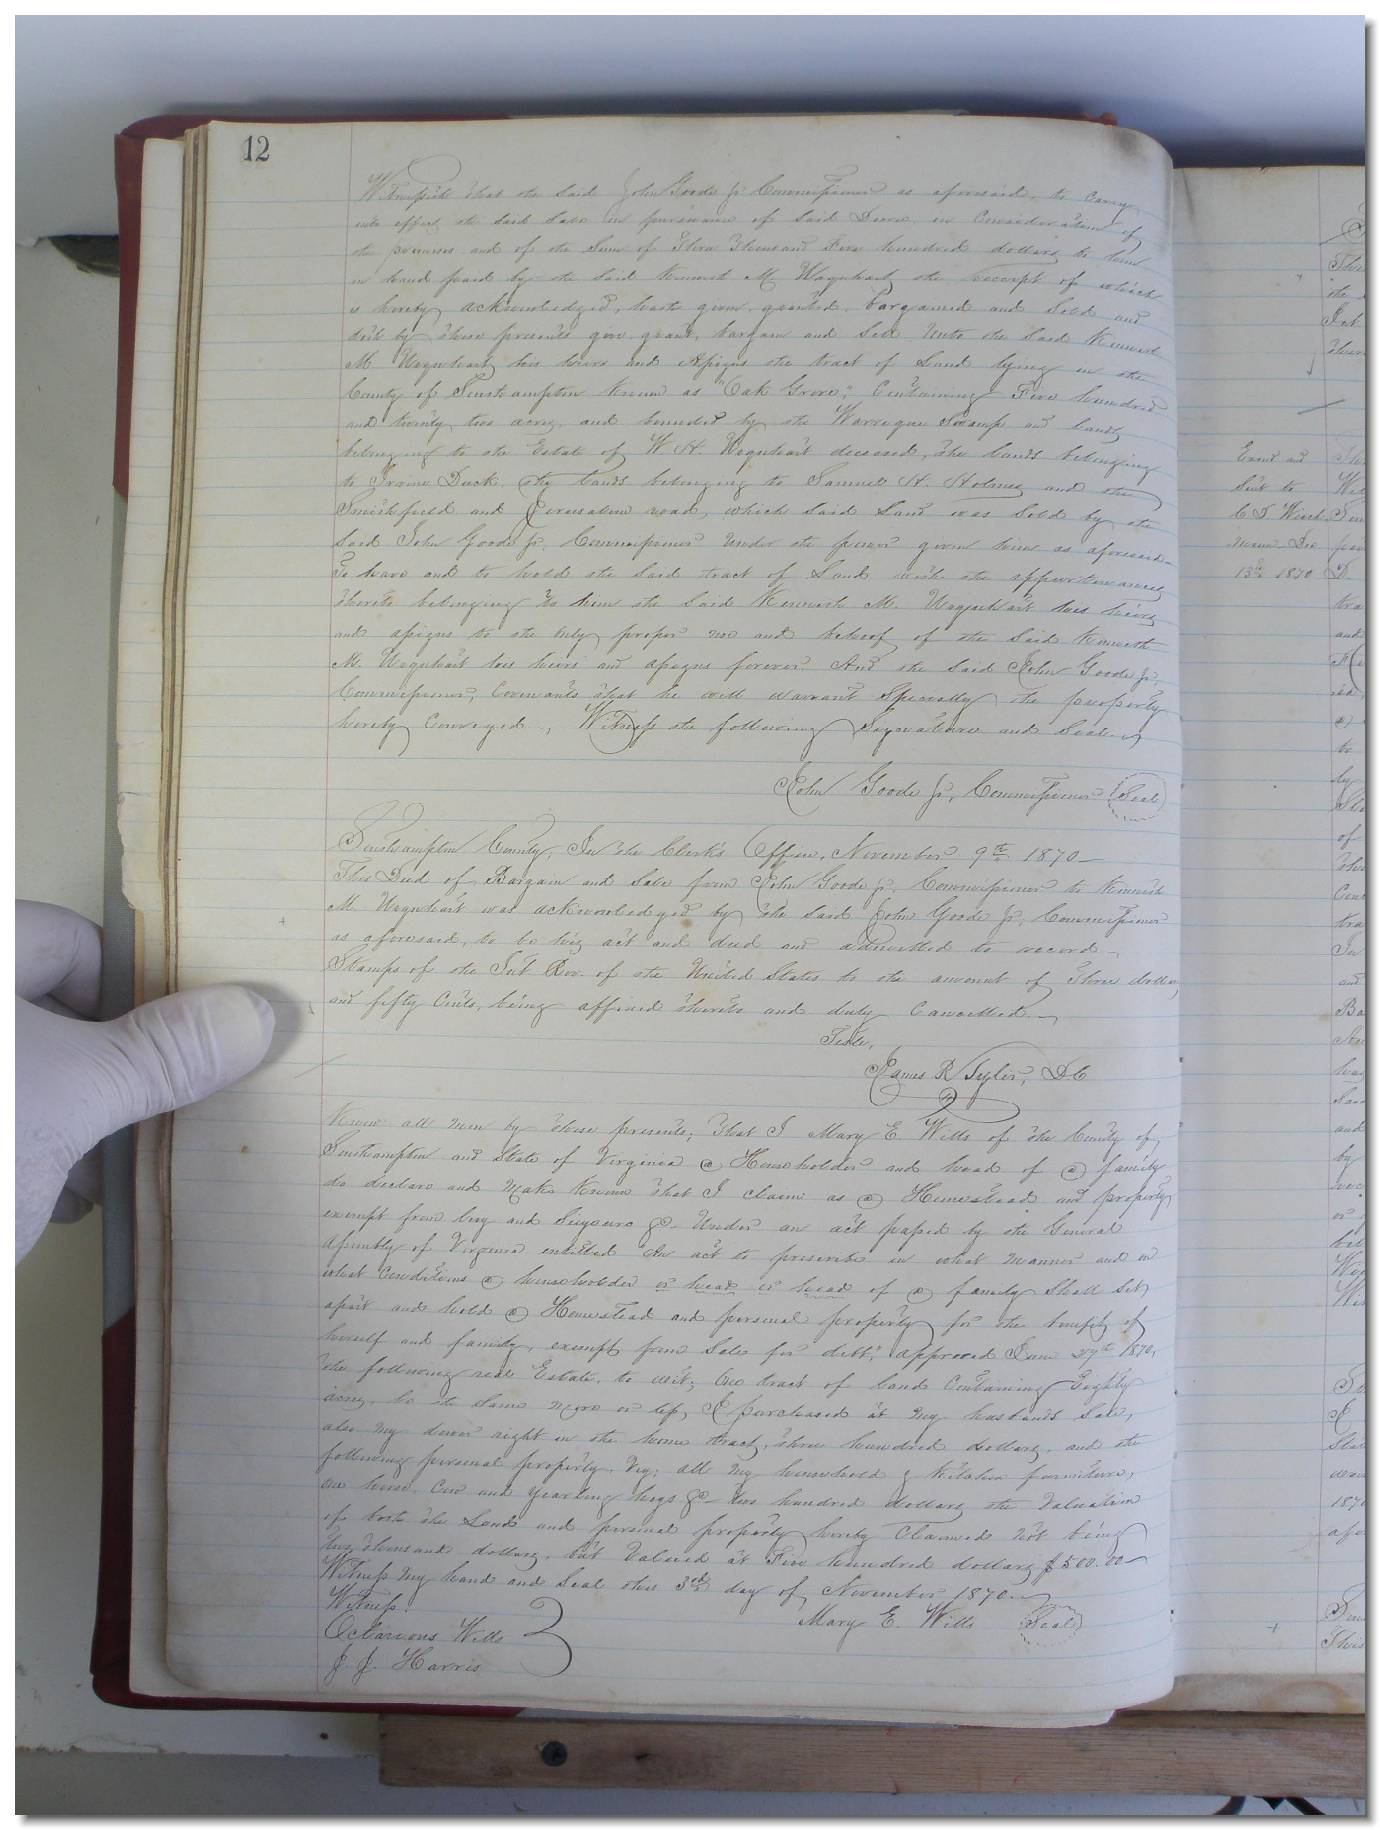 12
Witnesseth that the said John Goode Jr Commissioner as aforesaid, to carry
into effect the said Sale in pursuance of said Decree, in Consideration of
the premises and of the Sum of Three Thousand Five hundred dollars to him
in hand paid by the said Kenneth M Urquhart, the receipt of which
is hereby acknowledged, hath given, granted, bargained and Sold and
doth by these presents give grant, bargain and Sell Unto the Said Kenneth
M Urquhart his heirs and Assigns the tract of Land lying in the
County of Southampton Known as "Oak Grove," Containing Five hundred
and twenty two acres, and bounded by the Warreque Swamp and lands
belonging to the Estate of W H. Urquhart deceased, the lands belonging
to Irvine Duck, the lands belonging to Samuel H. Holmes and the
Smithfield and Jerusalem road, which Said Land was Sold by the
Said John Goode Jr. Commissioner Under the power given him as aforesaid
To have and to hold the Said tract of Land with the appurtenances
thereto belonging to him the Said Kenneth M. Urquhart his heirs
and assigns to the only proper use and behoof of the Said Kenneth
M. Urquhart his heirs and assigns forever. And the Said John Goode Jr,
Commissioner, Covenants that he will warrant Specially the property
hereby Conveyed, Witness the following Signature and Seal
John Goode Jr, Commissioner (Seal)
Southampton County, In the Clerk's Office, November 9th 1870
This Deed of Bargain and Sale from John Goode Jr, Commissioner to Kenneth
M. Urquhart was acknowledged by the Said John Goode Jr, Commissioner
as aforesaid, to be his act and deed and admitted to record
Stamps of the Int Rev. of the United States to the amount of Three dollars
and fifty Cents, being affixed thereto and duly Cancelled
Teste,
James R Tyler, D.C
Know all men by these presents; That I Mary E. Wills of the County of
Southampton and State of Virginia a Householder and head of a family
do declare and make Known that I claim as a Homestead and property
exempt from levy and Seizure &c. Under an act passed by the General
Assembly of Virginia entitled An act to prescribe in what manner and on
what Conditions a householder or head or head of a family Shall Set
apart and hold a Homestead and personal property for the benefit of
himself and family, exempt from Sale for debt; approved June 27th 1870,
the following real Estate, to wit; One tract of land Containing Eighty
acres, be the Same more or less, I purchased at my husbands Sale,
also my dower right in the home tract, three hundred dollars, and the
following personal property, Viz; all my household & Kitchen furniture,
one horse, Cow and Yearling hogs &c two hundred dollars the Valuation
of both the Land and personal property hereby Claimed not being
two thousand dollars, but Valued at Five hundred dollars $500.00
Witness my hand and Seal this 3rd day of November 1870
Witness. Mary E. Wills (Seal)
Octavious Wills
J. J. Harris
Exmd and
Sent to
13th 1870